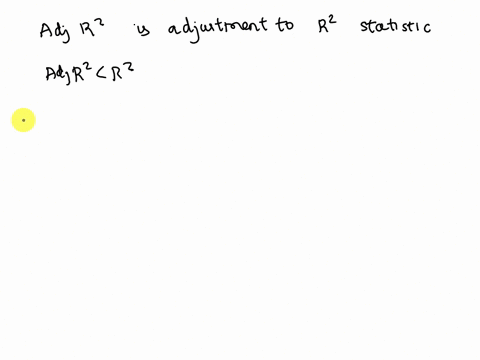 Adj R² is adjustment to R² statistic
Adj R² < R²